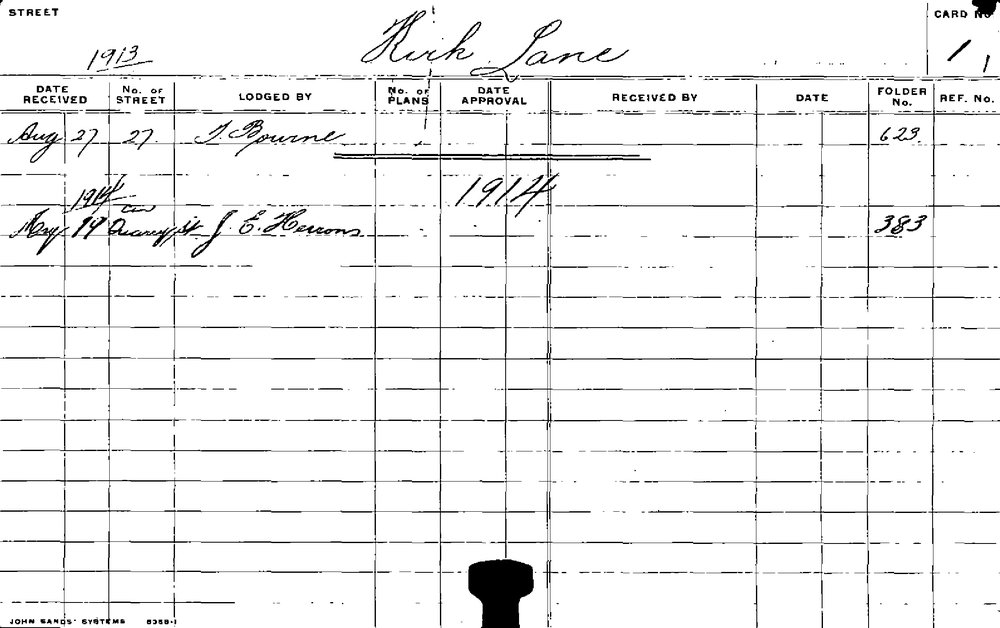 STREET
CARD No
1913
Kirk Lane
1
DATE RECEIVED
No. OF STREET
LODGED BY
No. OF PLANS
DATE APPROVAL
RECEIVED BY
DATE
FOLDER No.
REF. No.
Aug 27 27. T. Bourne 623
1914
1914
Cnr
19 Quarry St J. E. Herrons 383
JOHN SANDS' SYSTEMS